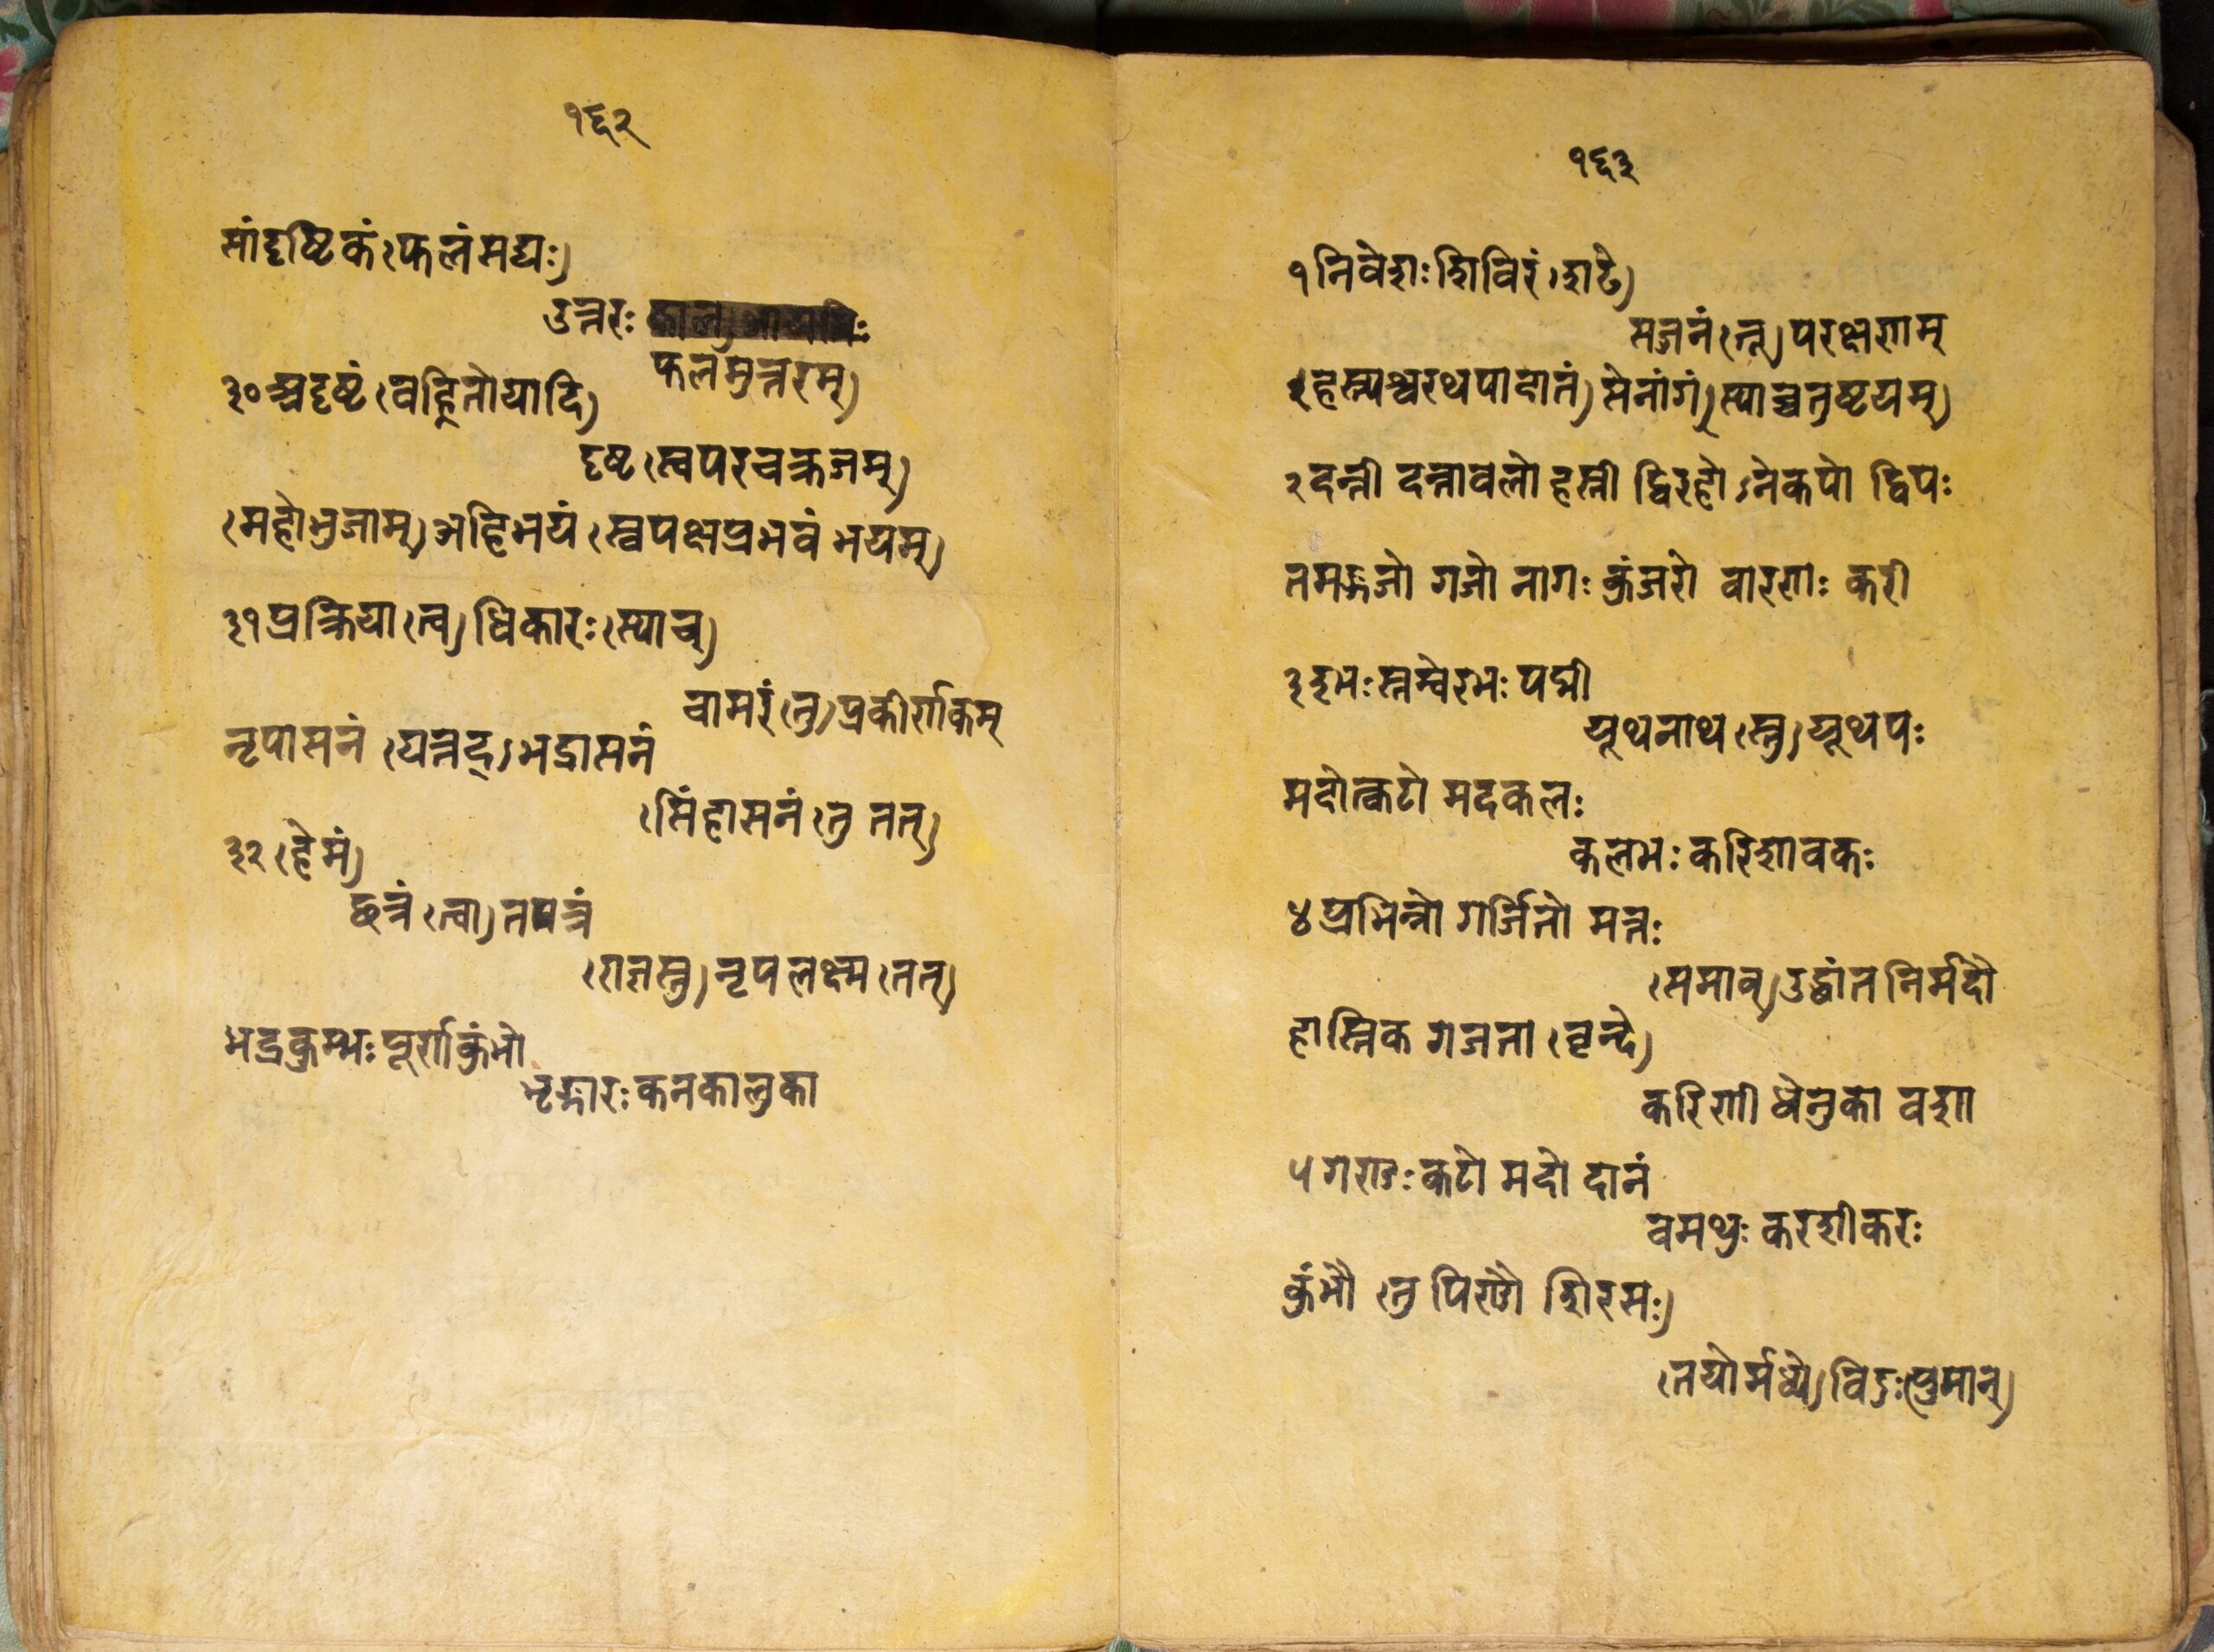 १६२
सांदृष्टिकं (फलं सद्यः)
उत्तरः
फलमुत्तरम्)
३० अदृष्टं (वह्नितोयादि)
दृष्ट (स्वपरचक्रजम्)
(महीभुजाम्) अहिभयं (स्वपक्षप्रभवं भयम्)
३१ प्रक्रिया (त्व) धिकारः (स्याच्)
चामरं (तु) प्रकीर्णकम्
नृपासनं (यत्तद्) भद्रासनं
(सिंहासनं (तु तत्)
३२ (हैमं)
छत्रं (त्वा) तपत्रं
(राज्ञस्तु) नृपलक्ष्म (तत्)
भद्रकुम्भः पूर्णकुंभो
भृङ्गारः कनकालुका
१६३
१ निवेशः शिविरं (शढे)
सज्जनं (तू) परक्षणम्
१ हस्त्यश्वरथपादातं) सेनांगं (स्याच्चतुष्टयम्)
२ दन्ती दन्तावलो हस्ती द्विरदो ऽनेकपो द्विपः
तमङ्गजो गजो नागः कुंजरो वारणः करी
३ इभः स्तम्बेरभः पद्मी
यूथनाथ (स्तु) यूथपः
मदोत्कटो मदकलः
कलभः करिशावकः
४ प्रभिन्नो गर्जितो मत्तः
(समाव्) उद्वांत निर्मदौ
हास्तिक गजता (वृन्दे)
करिणी धेनुका वशा
५ गण्डः कटो मदो दानं
वमथुः करशीकरः
कुंभौ (तु पिण्डौ शिरसः)
(तयोर्मध्ये) विडुः (पुमान्)